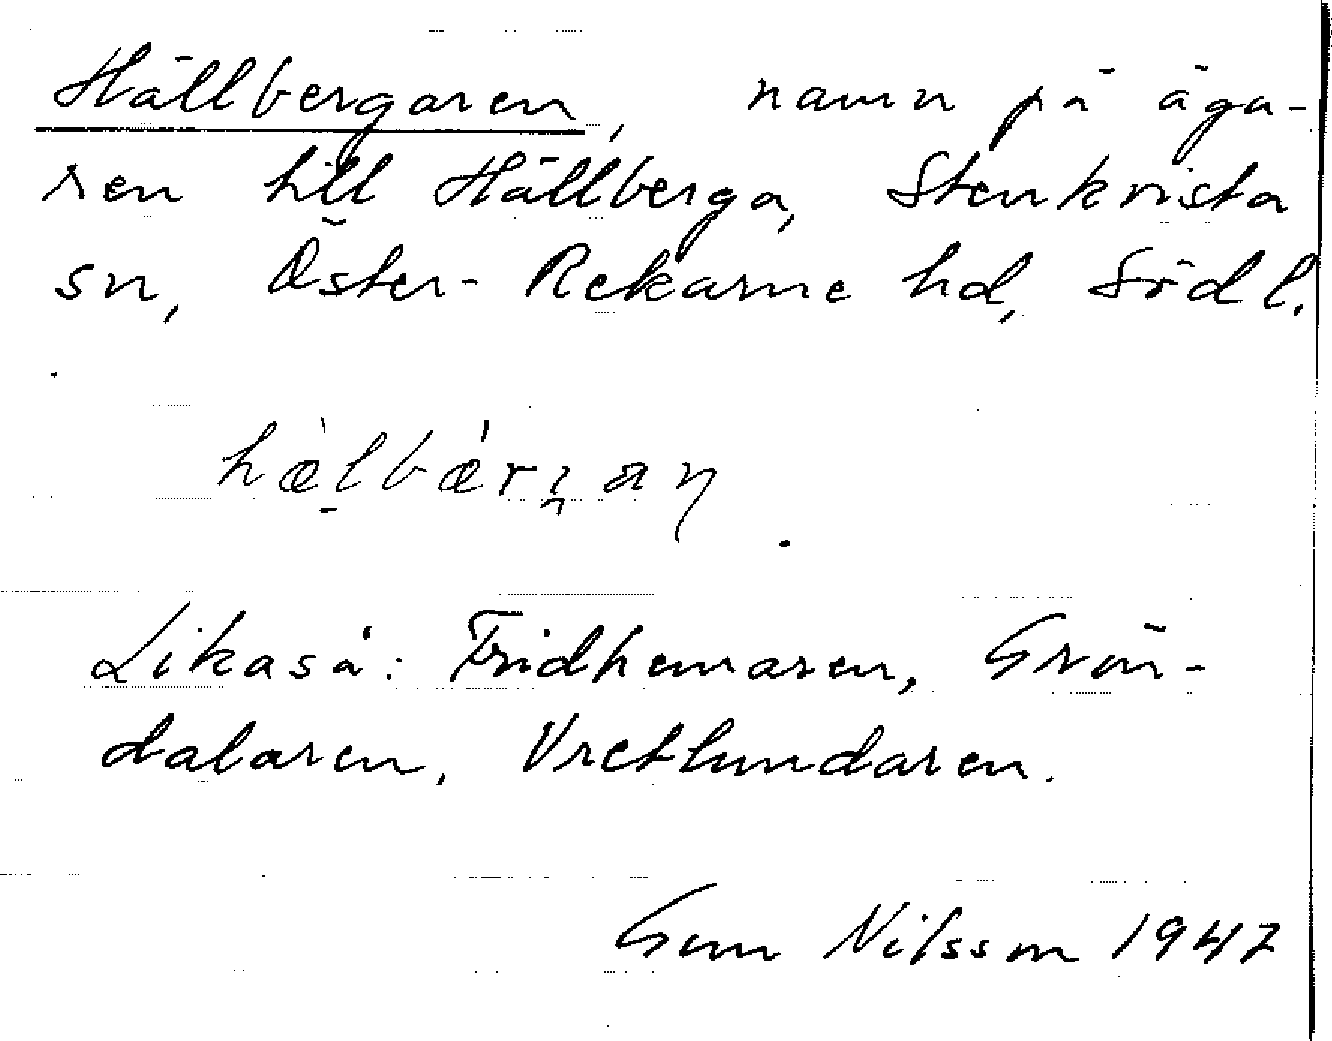 Hällbergaren, namn på äga-
ren till Hällberga, Stenkvista
sn, Öster-Rekarne hd, Södl.
Likaså: Fridhemaren, Grön-
dalaren, Vretlundaren.
Gun Nilsson 1947